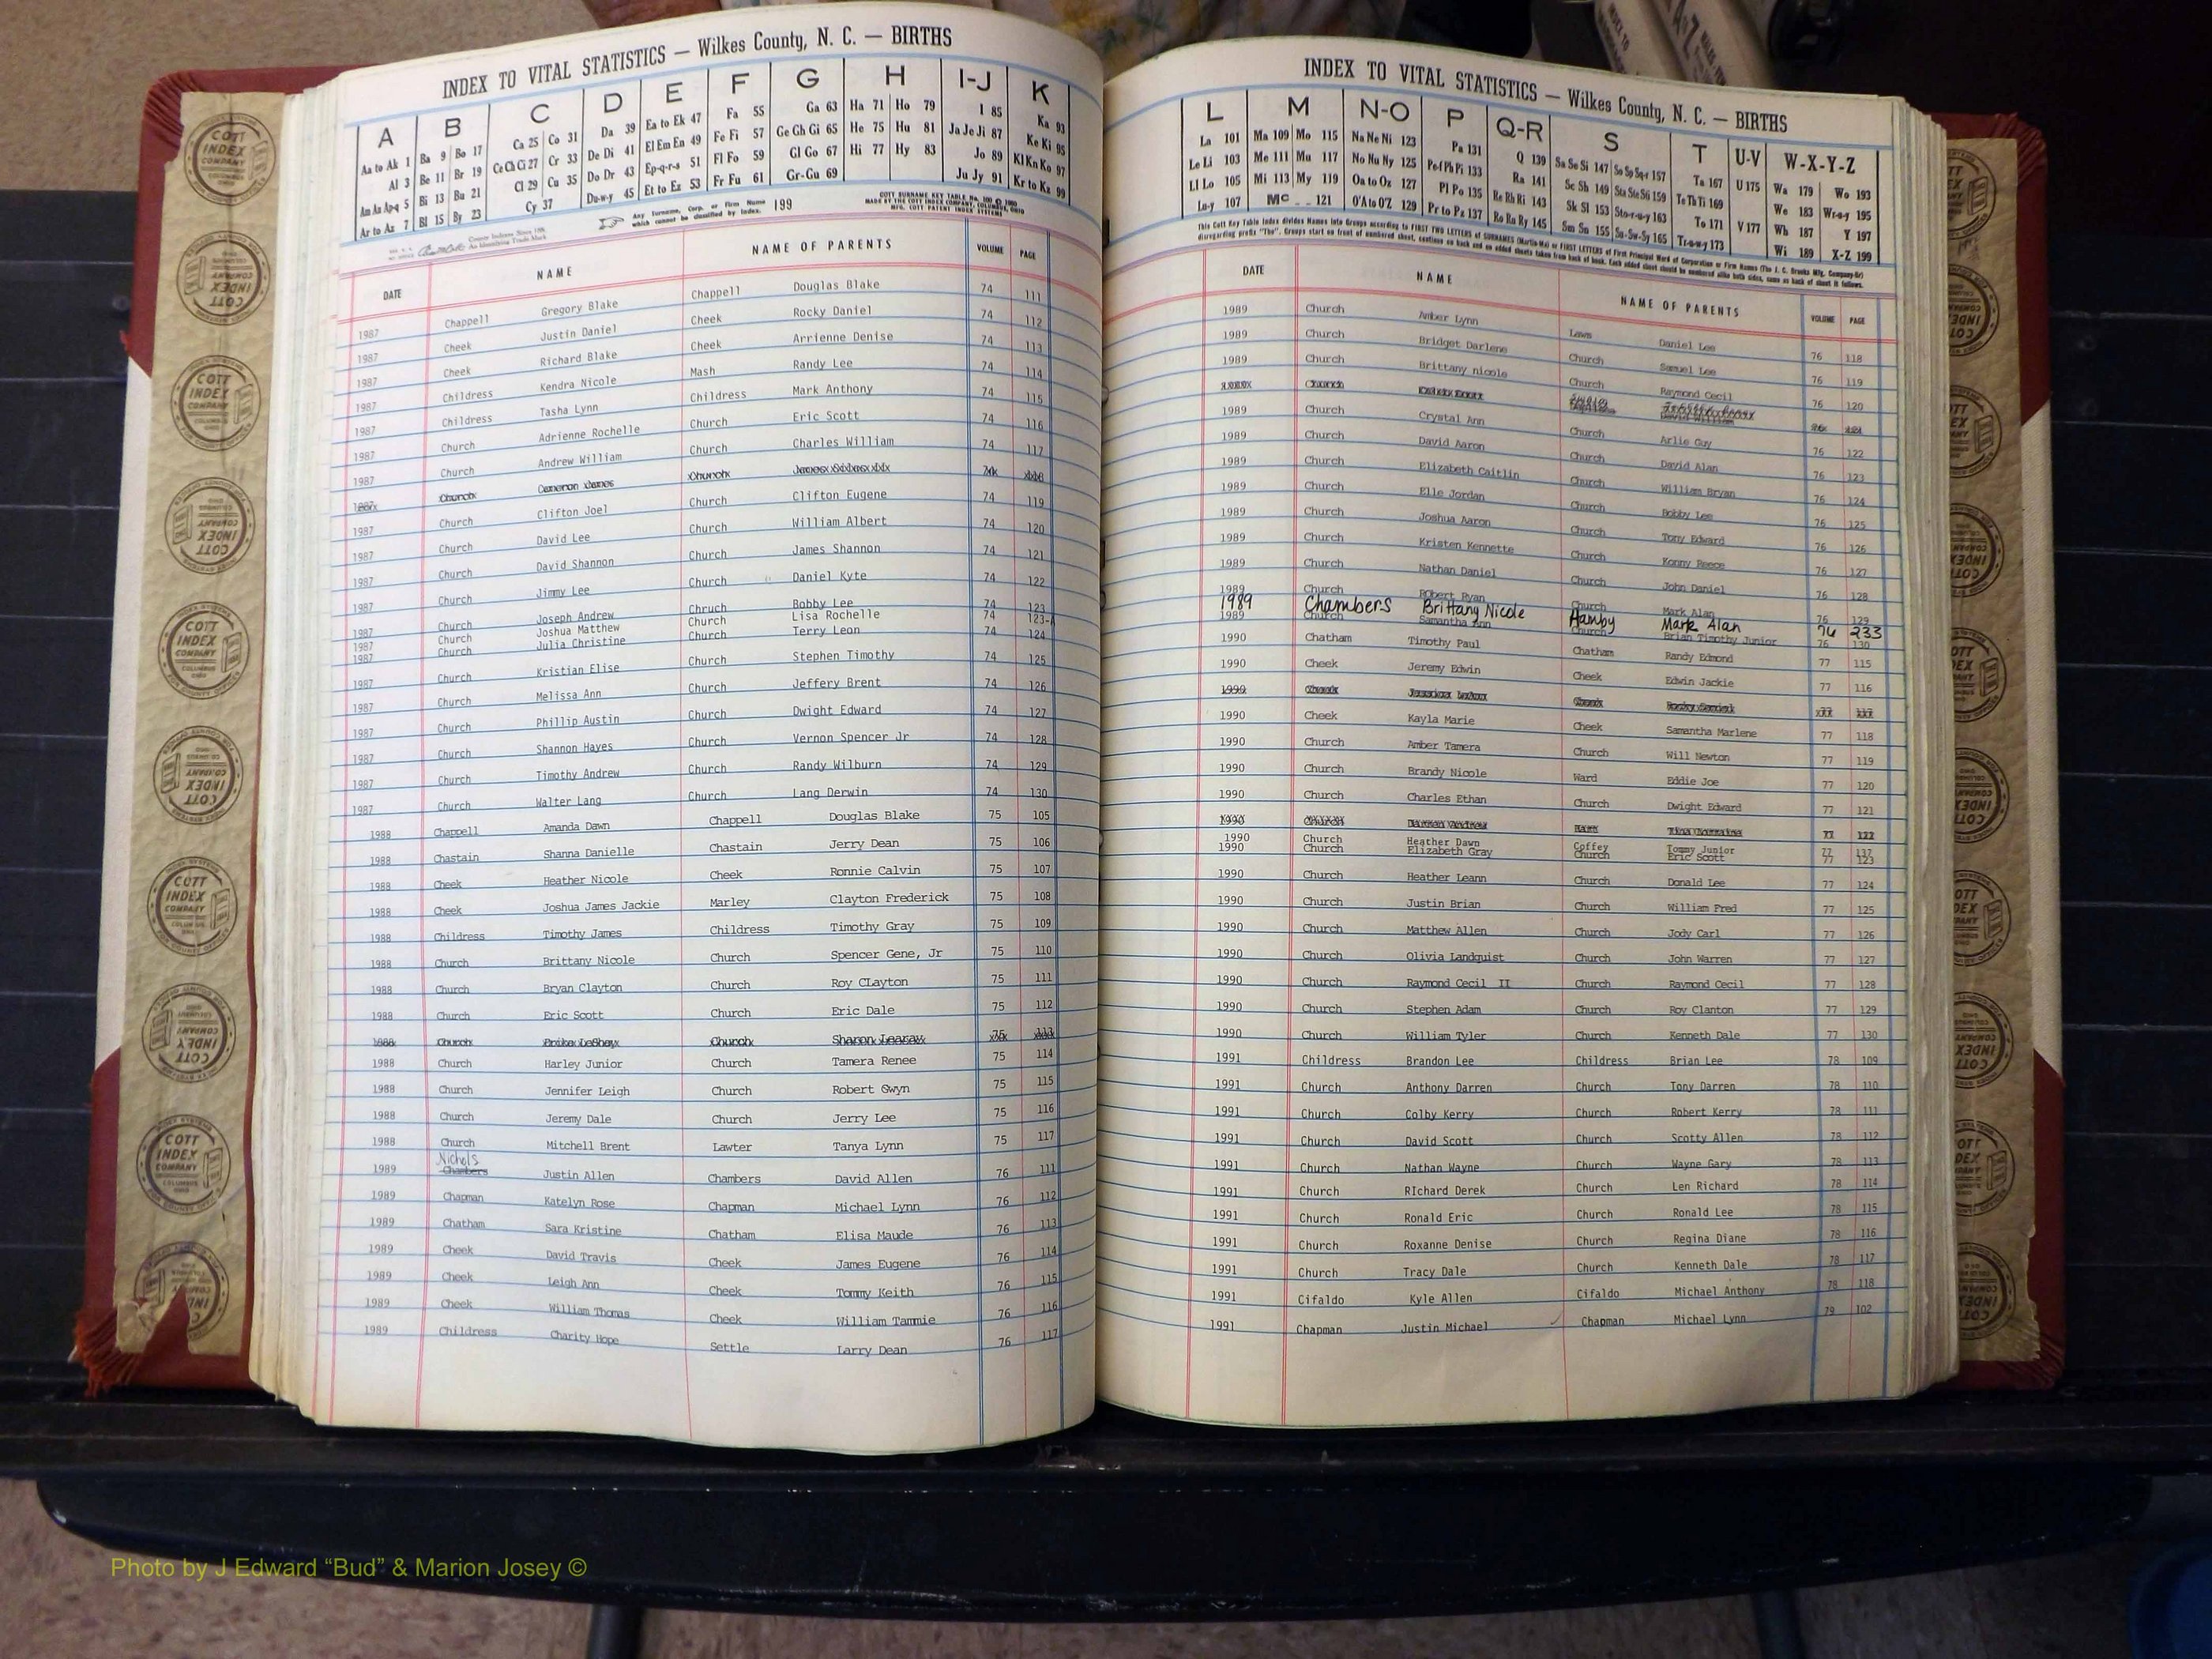 INDEX TO VITAL STATISTICS — Wilkes County, N. C. — BIRTHS
A B C D E F G H I-J K
Aa to Ak 1 Ba 9 Bo 17 Ca 25 Co 31 Da 39 Ea to Ek 47 Fa 55 Ga 63 Ha 71 Ho 79 I 85 Ka 93
Al 3 Be 11 Br 19 Ce Ch Ci 27 Cr 33 De Di 41 El Em En 49 Fe Fi 57 Ge Gh Gi 65 He 75 Hu 81 Ja Je Ji 87 Ke Ki 95
Am An Ap-q 5 Bi 13 Bu 21 Cl 29 Cu 35 Do Dr 43 Ep-q-r-s 51 Fl Fo 59 Gl Go 67 Hi 77 Hy 83 Jo 89 Kl Kn Ko 97
Ar to Az 7 Bl 15 By 23 Cy 37 Du-w-y 45 Et to Ez 53 Fr Fu 61 Gr-Gu 69 Ju Jy 91 Kr to Kz 99
Any Surname, Corp. or Firm Name which cannot be classified by Index. 199
DATE NAME NAME OF PARENTS VOLUME PAGE
1987 Chappell Gregory Blake Chappell Douglas Blake 74 111
1987 Cheek Justin Daniel Cheek Rocky Daniel 74 112
1987 Cheek Richard Blake Cheek Arrienne Denise 74 113
1987 Childress Kendra Nicole Mash Randy Lee 74 114
1987 Childress Tasha Lynn Childress Mark Anthony 74 115
1987 Church Adrienne Rochelle Church Eric Scott 74 116
1987 Church Andrew William Church Charles William 74 117
Church Cameron James Church
1987 Church Clifton Joel Church Clifton Eugene 74 119
1987 Church David Lee Church William Albert 74 120
1987 Church David Shannon Church James Shannon 74 121
1987 Church Jimmy Lee Church Daniel Kyte 74 122
1987 Church Joseph Andrew Chruch Bobby Lee 74 123
1987 Church Joshua Matthew Church Lisa Rochelle 74 123-A
1987 Church Julia Christine Church Terry Leon 74 124
1987 Church Kristian Elise Church Stephen Timothy 74 125
1987 Church Melissa Ann Church Jeffery Brent 74 126
1987 Church Phillip Austin Church Dwight Edward 74 127
1987 Church Shannon Hayes Church Vernon Spencer Jr 74 128
1987 Church Timothy Andrew Church Randy Wilburn 74 129
1987 Church Walter Lang Church Lang Derwin 74 130
1988 Chappell Amanda Dawn Chappell Douglas Blake 75 105
1988 Chastain Shanna Danielle Chastain Jerry Dean 75 106
1988 Cheek Heather Nicole Cheek Ronnie Calvin 75 107
1988 Cheek Joshua James Jackie Marley Clayton Frederick 75 108
1988 Childress Timothy James Childress Timothy Gray 75 109
1988 Church Brittany Nicole Church Spencer Gene, Jr 75 110
1988 Church Bryan Clayton Church Roy CLayton 75 111
1988 Church Eric Scott Church Eric Dale 75 112
1988 Church Church Sharon 75 113
1988 Church Harley Junior Church Tamera Renee 75 114
1988 Church Jennifer Leigh Church Robert Gwyn 75 115
1988 Church Jeremy Dale Church Jerry Lee 75 116
1988 Church Mitchell Brent Lawter Tanya Lynn 75 117
Nichols
1989 Chambers Justin Allen Chambers David Allen 76 111
1989 Chapman Katelyn Rose Chapman Michael Lynn 76 112
1989 Chatham Sara Kristine Chatham Elisa Maude 76 113
1989 Cheek David Travis Cheek James Eugene 76 114
1989 Cheek Leigh Ann Cheek Tommy Keith 76 115
1989 Cheek William Thomas Cheek William Tammie 76 116
1989 Childress Charity Hope Settle Larry Dean 76 117
INDEX TO VITAL STATISTICS — Wilkes County, N. C. — BIRTHS
L M N-O P Q-R S T U-V W-X-Y-Z
La 101 Ma 109 Mo 115 Na Ne Ni 123 Pa 131 Q 139 Sa Se Si 147 So Sp Sq-r 157 Ta 167 U 175 Wa 179 Wo 193
Le Li 103 Me 111 Mu 117 No Nu Ny 125 Pe Pf Ph Pi 133 Ra 141 Sc Sh 149 Sta Ste Sti 159 Te Th Ti 169 We 183 Wr-u-y 195
Ll Lo 105 Mi 113 My 119 Oa to Oz 127 Pl Po 135 Re Rh Ri 143 Sk Sl 153 Sto-r-u-y 163 To 171 V 177 Wh 187 Y 197
Lu-y 107 Mc 121 O'A to O'Z 129 Pr to Pz 137 Ro Ru Ry 145 Sm Sn 155 Su-Sw-Sy 165 Tr-u-w-y 173 Wi 189 X-Z 199
DATE NAME NAME OF PARENTS VOLUME PAGE
1989 Church Amber Lynn Laws Daniel Lee 76 118
1989 Church Bridget Darlene Church Samuel Lee 76 119
1989 Church Brittany nicole Church Raymond Cecil 76 120
Church
1989 Church Crystal Ann Church Arlie Guy 76 122
1989 Church David Aaron Church David Alan 76 123
1989 Church Elizabeth Caitlin Church William Bryan 76 124
1989 Church Elle Jordan Church Bobby Lee 76 125
1989 Church Joshua Aaron Church Tony Edward 76 126
1989 Church Kristen Kennette Church Konny Reece 76 127
1989 Church Nathan Daniel Church John Daniel 76 128
1989 Church Robert Ryan Church Mark Alan 76 129
1989 Chambers Brittany Nicole Hamby Mark Alan 76 233
1989 Church Samantha Ann Church Brian Timothy Junior 76 130
1990 Chatham Timothy Paul Chatham Randy Edmond 77 115
1990 Cheek Jeremy Edwin Cheek Edwin Jackie 77 116
1990 Cheek Cheek 77 117
1990 Cheek Kayla Marie Cheek Samantha Marlene 77 118
1990 Church Amber Tamera Church Will Newton 77 119
1990 Church Brandy Nicole Ward Eddie Joe 77 120
1990 Church Charles Ethan Church Dwight Edward 77 121
1990 Church 77 122
1990 Church Heather Dawn Coffey Tommy Junior 77 137
1990 Church Elizabeth Gray Church Eric Scott 77 123
1990 Church Heather Leann Church Donald Lee 77 124
1990 Church Justin Brian Church William Fred 77 125
1990 Church Matthew Allen Church Jody Carl 77 126
1990 Church Olivia Landquist Church John Warren 77 127
1990 Church Raymond Cecil II Church Raymond Cecil 77 128
1990 Church Stephen Adam Church Roy Clanton 77 129
1990 Church William Tyler Church Kenneth Dale 77 130
1991 Childress Brandon Lee Childress Brian Lee 78 109
1991 Church Anthony Darren Church Tony Darren 78 110
1991 Church Colby Kerry Church Robert Kerry 78 111
1991 Church David Scott Church Scotty Allen 78 112
1991 Church Nathan Wayne Church Wayne Gary 78 113
1991 Church RIchard Derek Church Len Richard 78 114
1991 Church Ronald Eric Church Ronald Lee 78 115
1991 Church Roxanne Denise Church Regina Diane 78 116
1991 Church Tracy Dale Church Kenneth Dale 78 117
1991 Cifaldo Kyle Allen Cifaldo Michael Anthony 78 118
1991 Chapman Justin Michael Chapman Michael Lynn 79 102
COTT INDEX COMPANY
Photo by J Edward “Bud” & Marion Josey ©